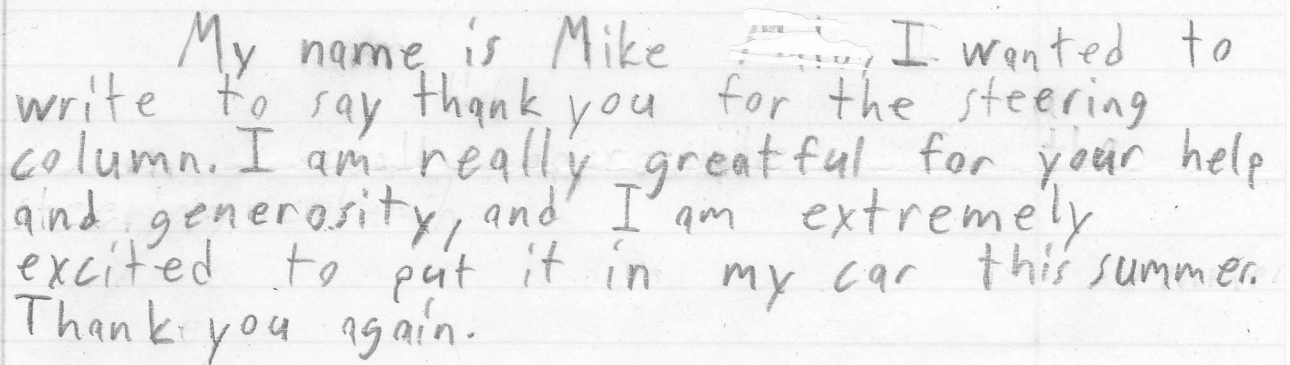 My name is Mike I wanted to
write to say thank you for the steering
column. I am really greatful for your help
and generosity, and I am extremely
excited to put it in my car this summer.
Thank you again.